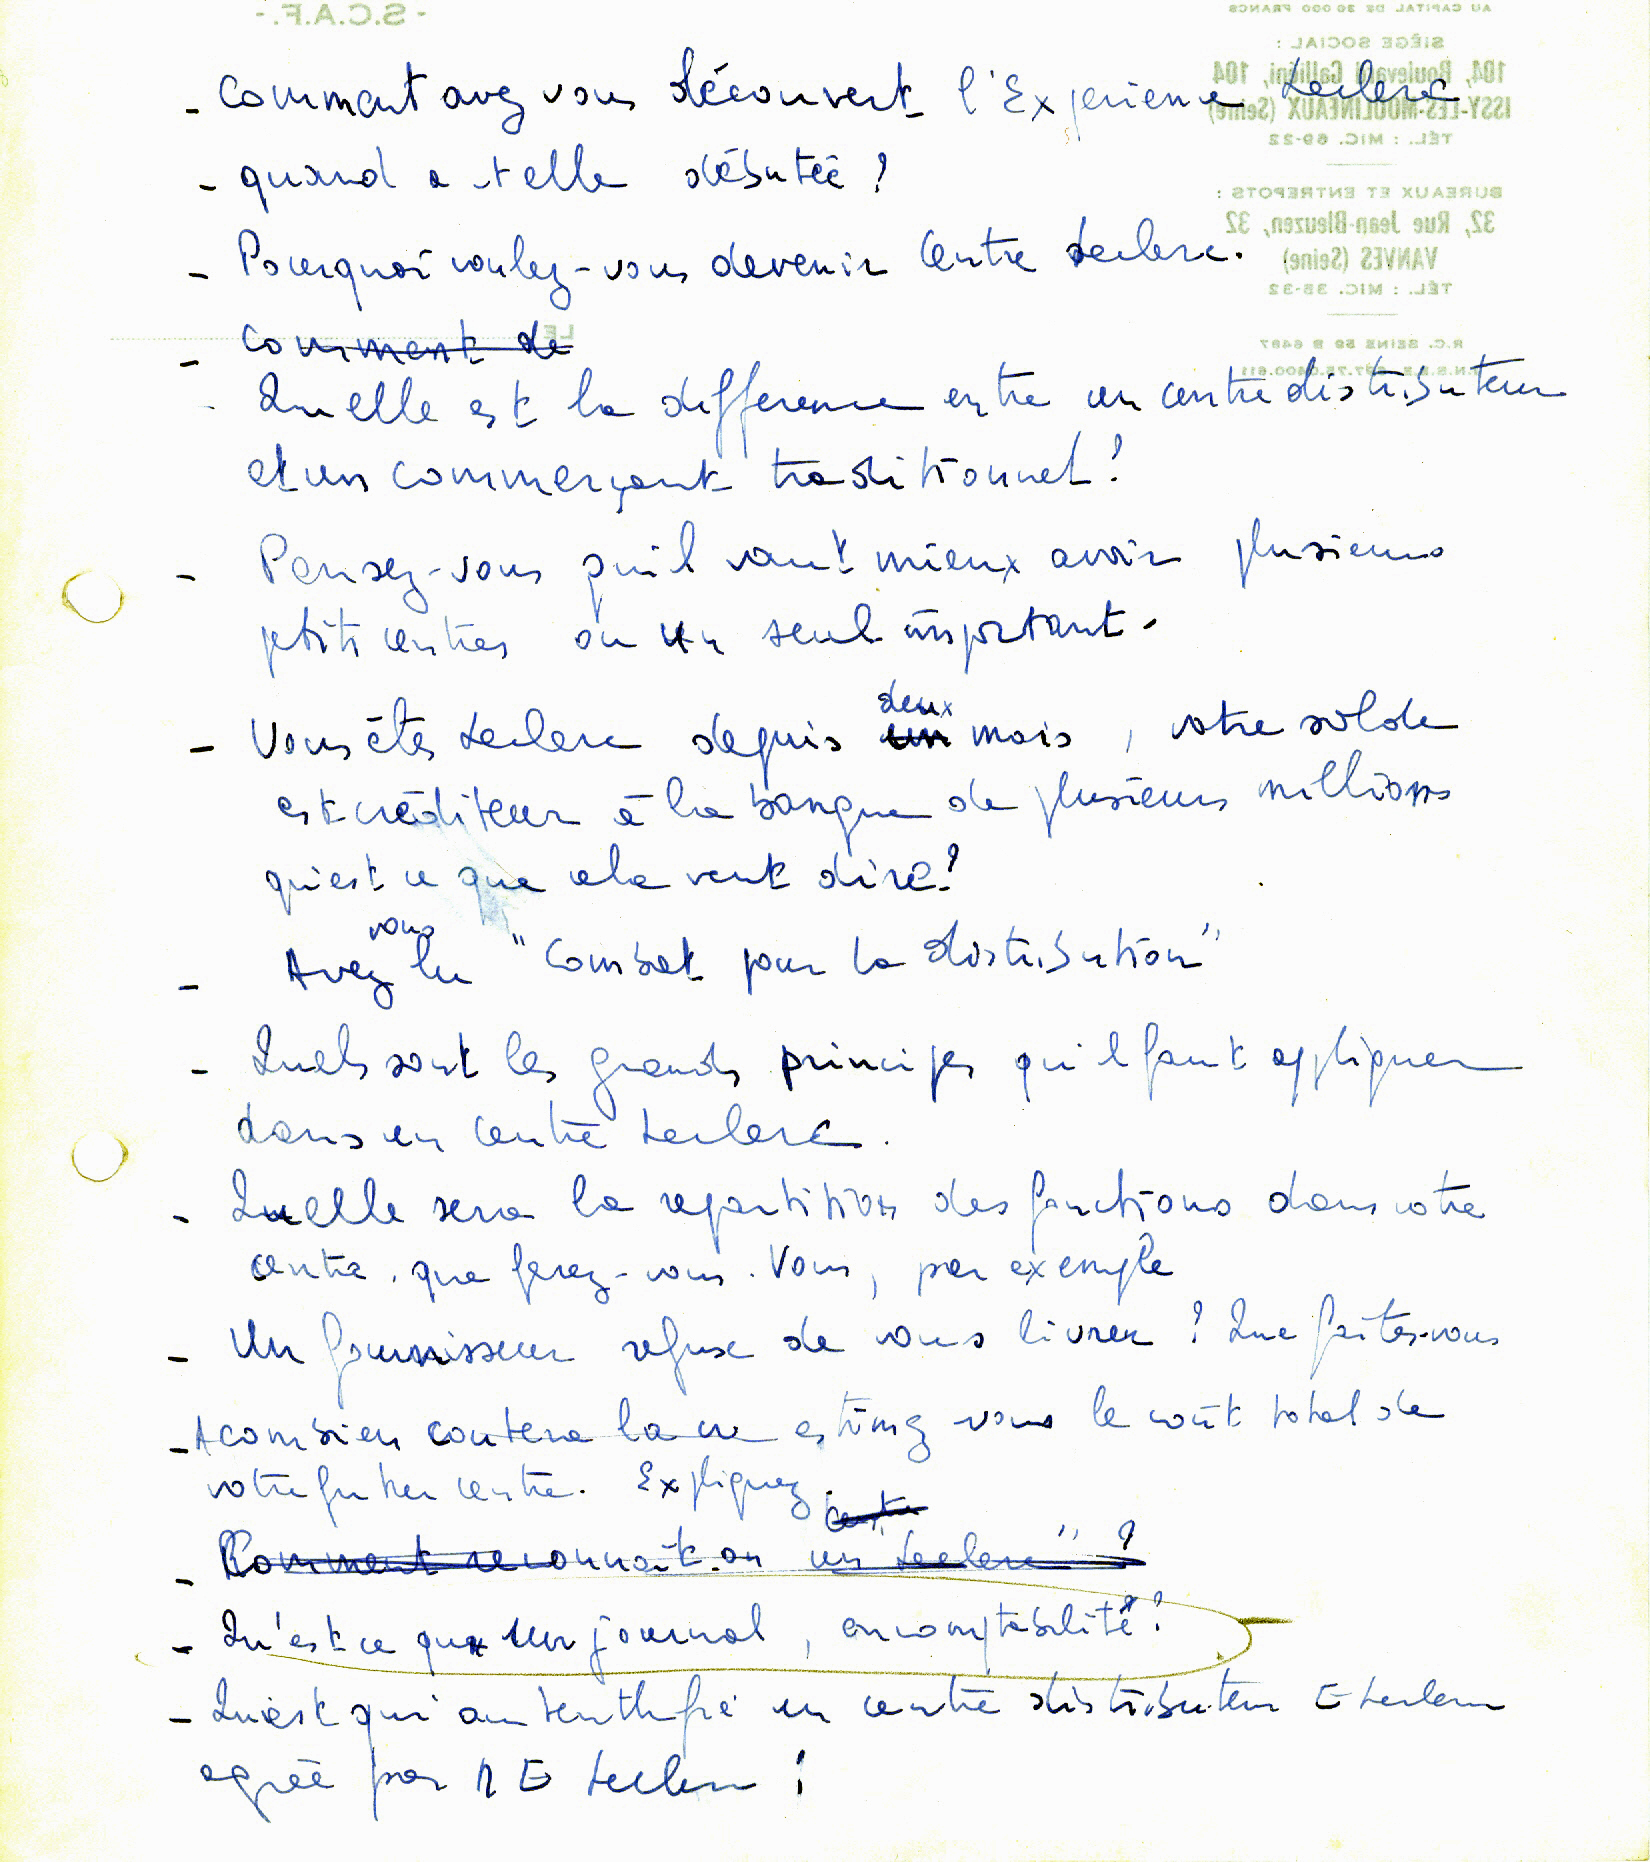 - S.C.A.F. -
AU CAPITAL DE 30 000 FRANCS
SIÈGE SOCIAL :
104, Boulevard Galliéni, 104
ISSY-LES-MOULINEAUX (Seine)
TÉL. : MIC. 69-22
BUREAUX ET ENTREPOTS :
32, Rue Jean-Bleuzen, 32
VANVES (Seine)
TÉL. : MIC. 38-32
R.C. SEINE 59 B 6487
LE
- Comment avez vous découvert l'Expérience Leclerc
- quand a t elle débutée ?
- Pourquoi voulez-vous devenir Centre Leclerc.
- Comment de
- Quelle est la difference entre un centre distributeur
et un commerçant traditionnel ?
- Pensez-vous qu'il vaut mieux avoir plusieurs
petits centres ou un seul important.
deux
- Vous êtes Leclerc depuis un mois, votre solde
est créditeur à la banque de plusieurs millions
qu'est ce que cela veut dire ?
vous
- Avez lu "Combat pour la distribution"
- Quels sont les grands principes qu'il faut appliquer
dans un Centre Leclerc.
- Quelle sera la repartition des fonctions dans votre
centre. que ferez-vous. Vous, par exemple
- Un fournisseur refuse de vous livrer ? Que faites-vous
- A combien coutera la cre estimez vous le coût total de
votre futur centre. Expliquez
Centre
- Comment reconnait-on un Leclerc" ?
- Qu'est ce que un journal, en comptabilité ?
- Qu'est qui authentifie un centre distributeur E Leclerc
agréé par M E Leclerc ?